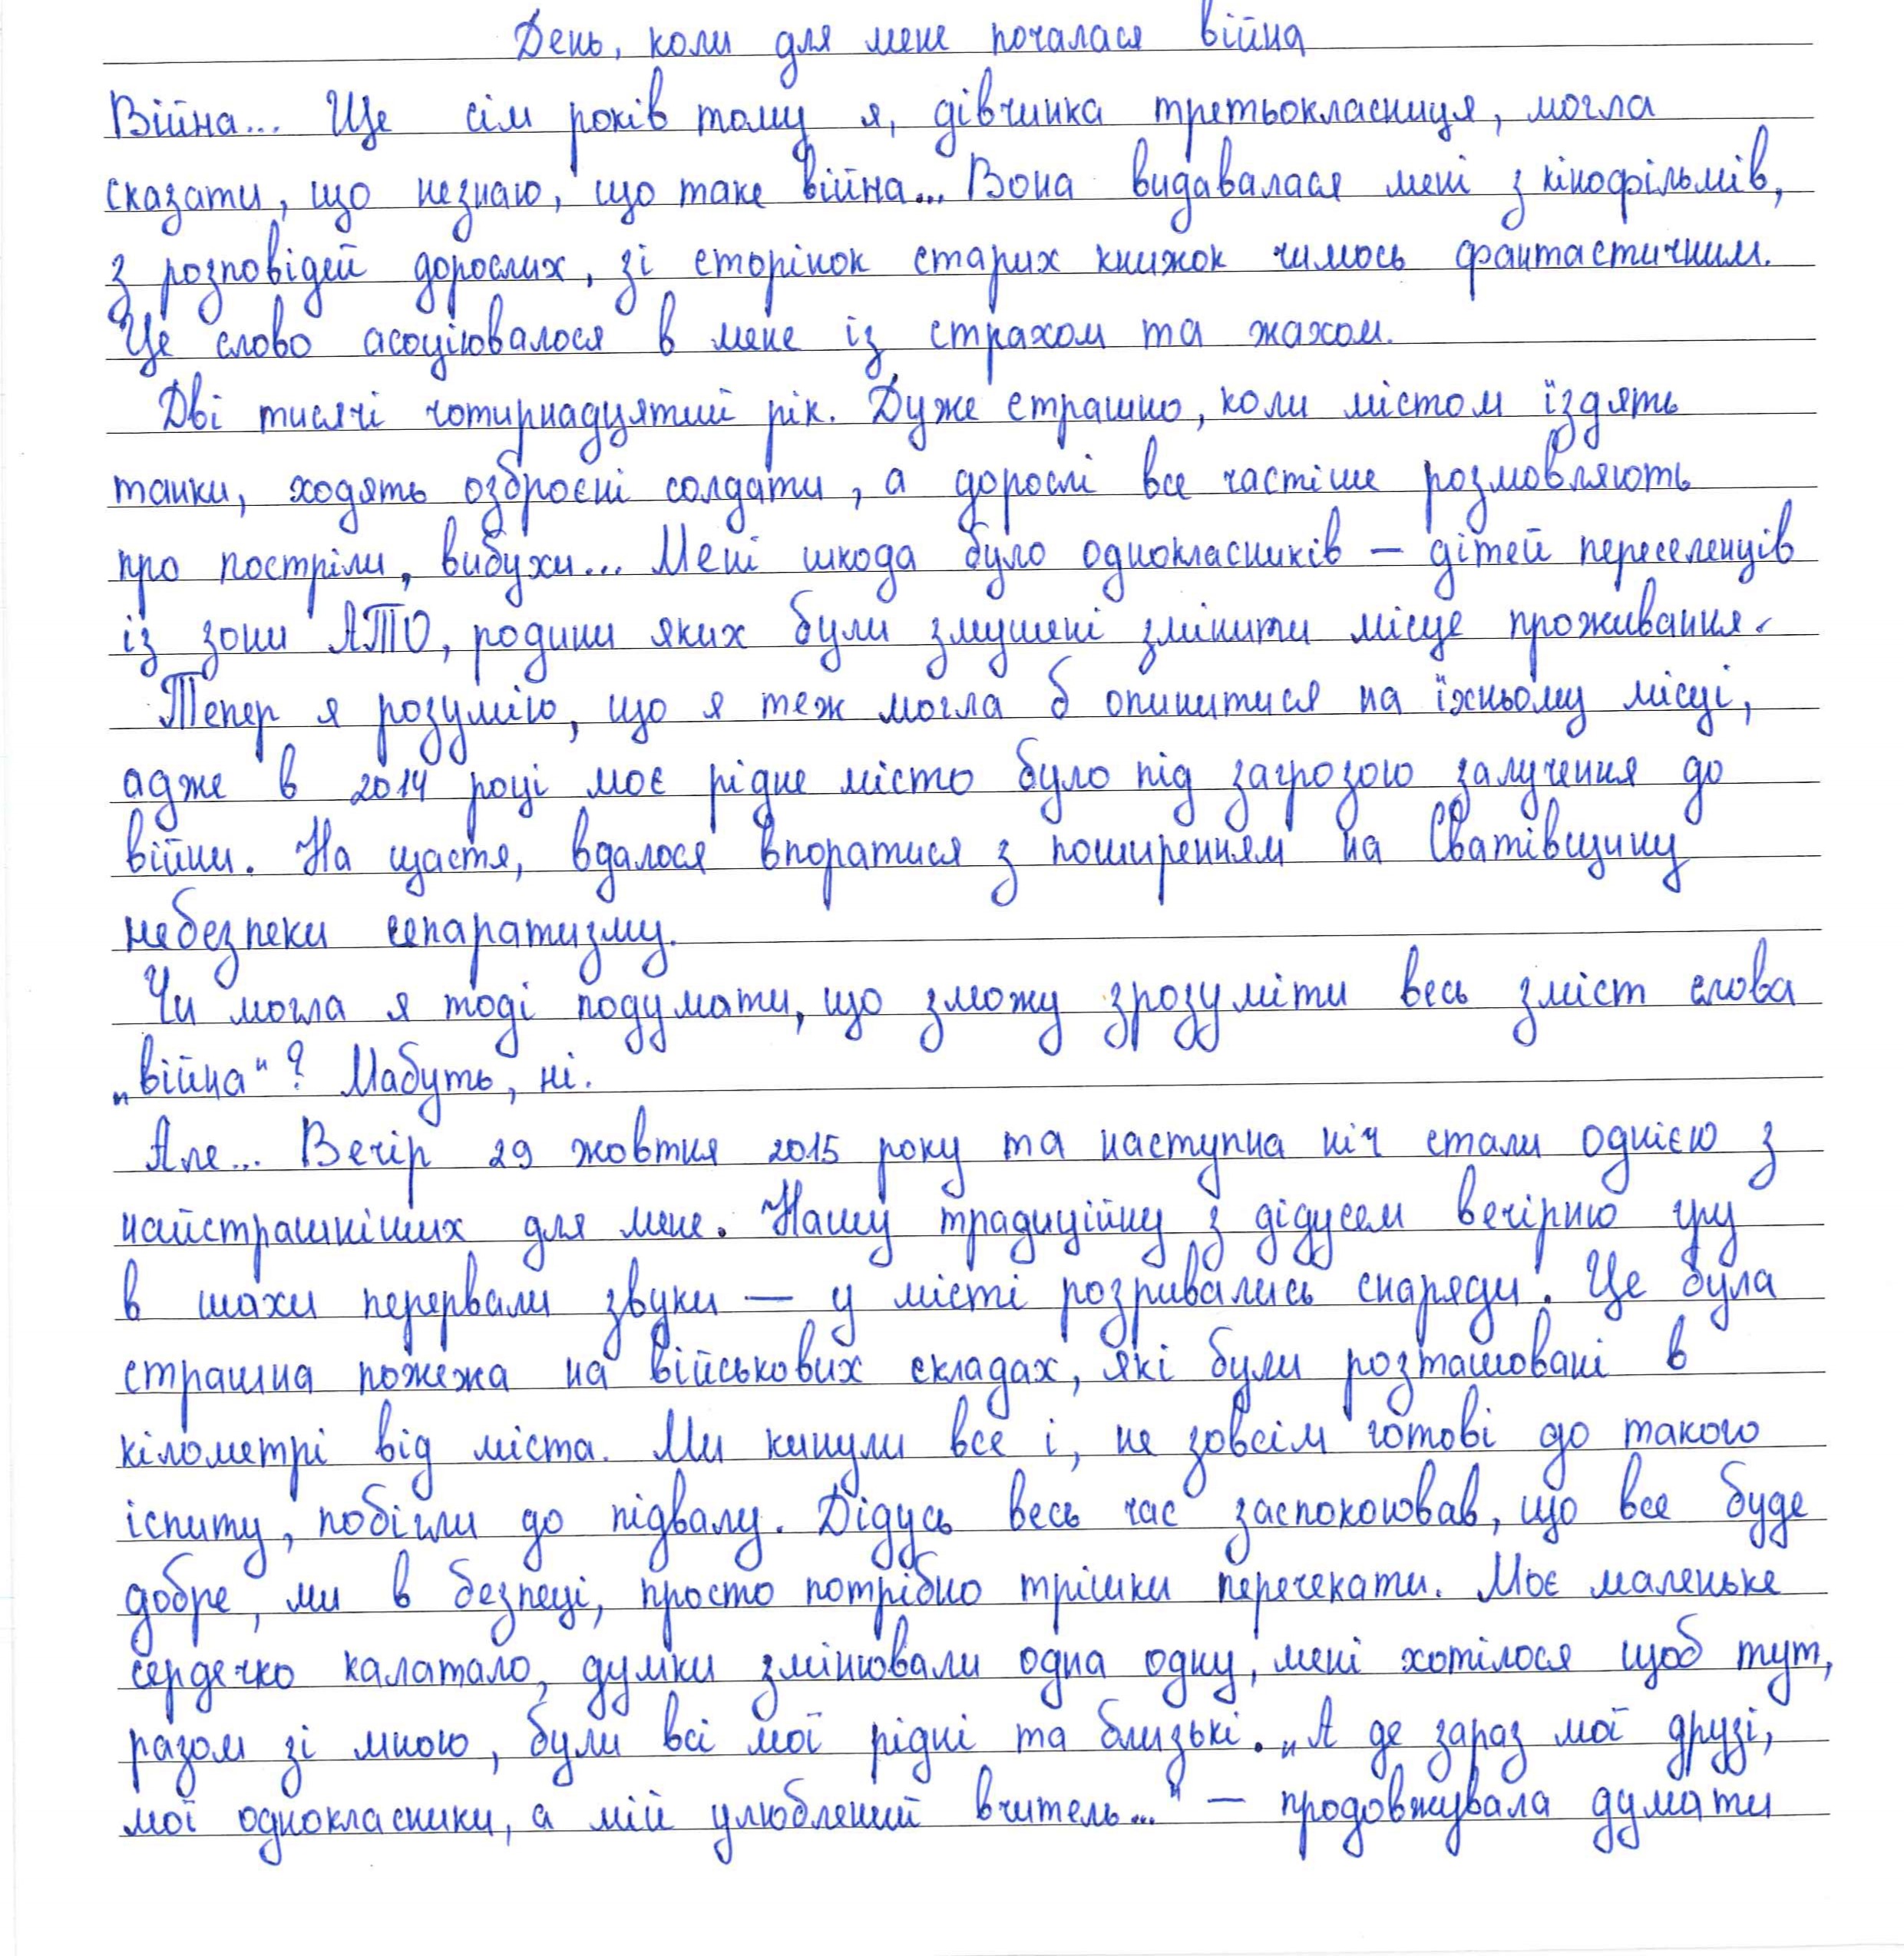 День, коли для мене почалася війна
Війна... Ще сім років тому я, дівчинка третьокласниця, могла
сказати, що незнаю, що таке війна... Вона видавалася мені з кінофільмів,
з розповідей дорослих, зі сторінок старих книжок чимось фантастичним.
Це слово асоціювалося в мене із страхом та жахом.
Дві тисячі чотирнадцятий рік. Дуже страшно, коли містом їздять
танки, ходять озброєні солдати, а дорослі все частіше розмовляють
про постріли, вибухи... Мені шкода було однокласників – дітей переселенців
із зони АТО, родини яких були змушені змінити місце проживання.
Тепер я розумію, що я теж могла б опинитися на їхньому місці,
адже в 2014 році моє рідне місто було під загрозою залучення до
війни. На щастя, вдалося впоратися з поширенням на Сватівщину
небезпеки сепаратизму.
Чи могла я тоді подумати, що зможу зрозуміти весь зміст слова
„війна"? Мабуть, ні.
Але... Вечір 29 жовтня 2015 року та наступна ніч стали однією з
найстрашніших для мене. Нашу традиційну з дідусем вечірню гру
в шахи перервали звуки — у місті розривались снаряди. Це була
страшна пожежа на військових складах, які були розташовані в
кілометрі від міста. Ми кинули все і, не зовсім готові до такого
іспиту, побігли до підвалу. Дідусь весь час заспокоював, що все буде
добре, ми в безпеці, просто потрібно трішки перечекати. Моє маленьке
сердечко калатало, думки змінювали одна одну, мені хотілося щоб тут,
разом зі мною, були всі мої рідні та близькі. „А де зараз мої друзі,
мої однокласники, а мій улюблений вчитель..." – продовжувала думати